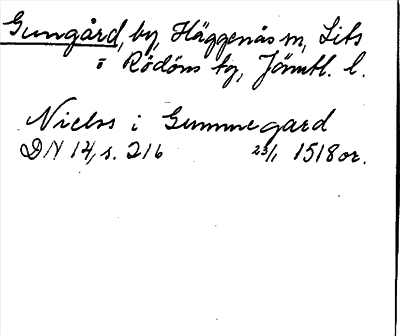 Gungård, by, Häggenås sn, Lits
o Rödöns tg, Jämtl. l.
Nielss i Gummegard
DN 14, s. 216 23/1 1518 or.